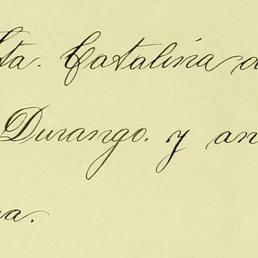 Sta. Catalina d
Durango. y an
a.